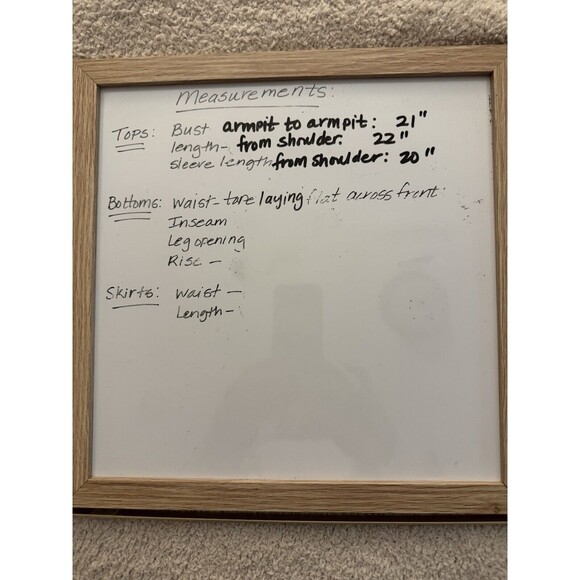 Measurements:
Tops: Bust armpit to armpit: 21"
length- from shoulder: 22"
sleeve length from shoulder: 20"
Bottoms: Waist- tape laying flat across front:
Inseam
Leg opening
Rise -
Skirts: Waist -
Length -